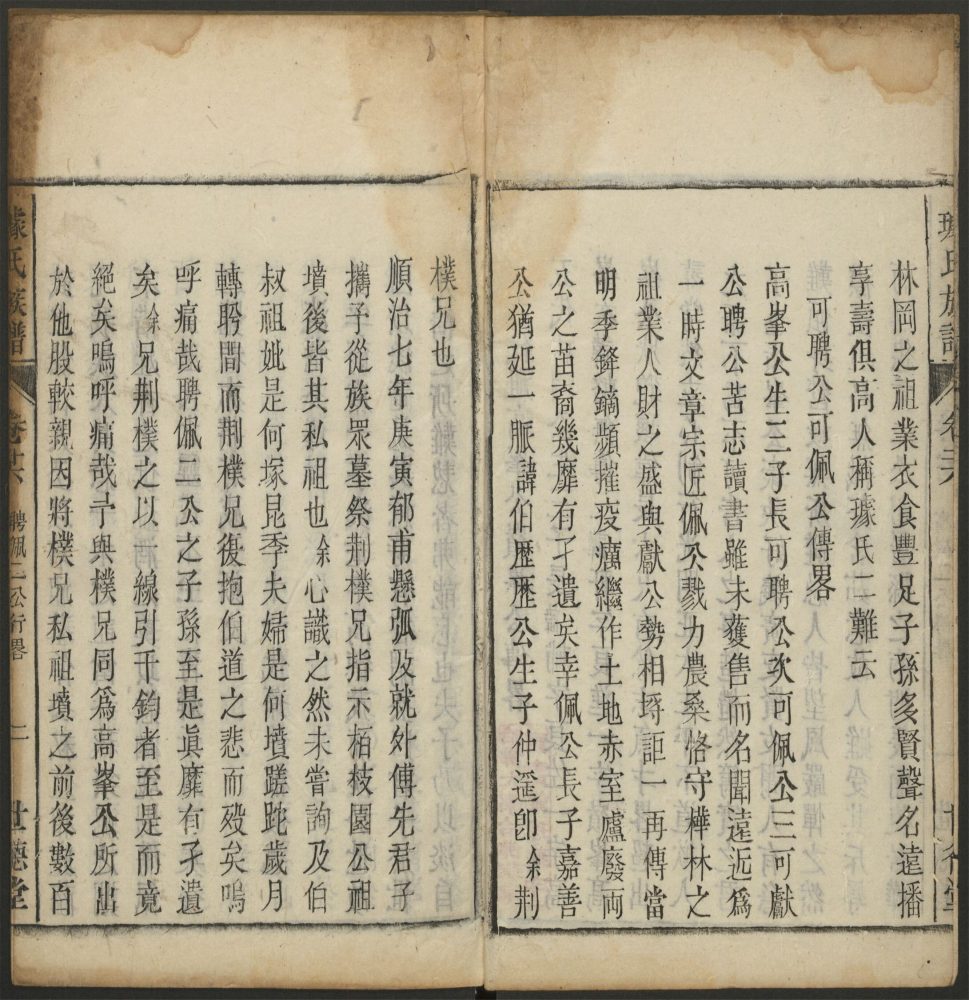 璩氏族譜
林岡之祖業衣食豐足子孫多賢聲名遠播
享壽俱高人稱璩氏二難云
可聘公可佩公傳畧
高峯公生三子長可聘公次可佩公三可獻
公聘公苦志讀書雖未獲售而名聞遠近爲
一時文章宗匠佩公戮力農桑恪守樺林之
祖業人財之盛與獻公勢相埒詎一再傳當
明季鋒鏑頻摧疫癘繼作土地赤室廬廢兩
公之苗裔幾靡有孑遺矣幸佩公長子嘉善
公猶延一脈諱伯歷歷公生子仲暹卽余荆
樸兄也
順治七年庚寅郁甫懸弧及就外傅先君子
攜子從族眾墓祭荆樸兄指示栢枝園公祖
墳後皆其私祖也余心識之然未嘗詢及伯
叔祖妣是何塚昆季夫婦是何墳蹉跎歲月
轉盻間而荆樸兄復抱伯道之悲而歿矣嗚
呼痛哉聘佩二公之子孫至是眞靡有孑遺
矣余兄荆樸之以一線引千鈞者至是而竟
絕矣嗚呼痛哉予與樸兄同爲高峯公所出
於他股較親因將樸兄私祖墳之前後數百
璩氏族譜 卷廿六 聘佩二公行畧 二 世德堂